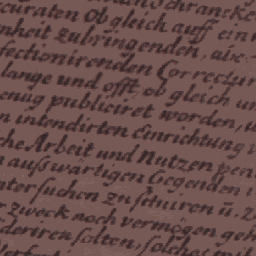 curaten Ob gleich auff ein
enheit zubringenden, abe
fectionirenden Correctur
lange und offt, ob gleich un
enug publiciret worden, u
n intendirten Einrichtung
che Arbeit und Nutzen
n außwärtigen Gegenden
ntersuchen zu führen ü.
zweck noch vermögen geh
solten, solches